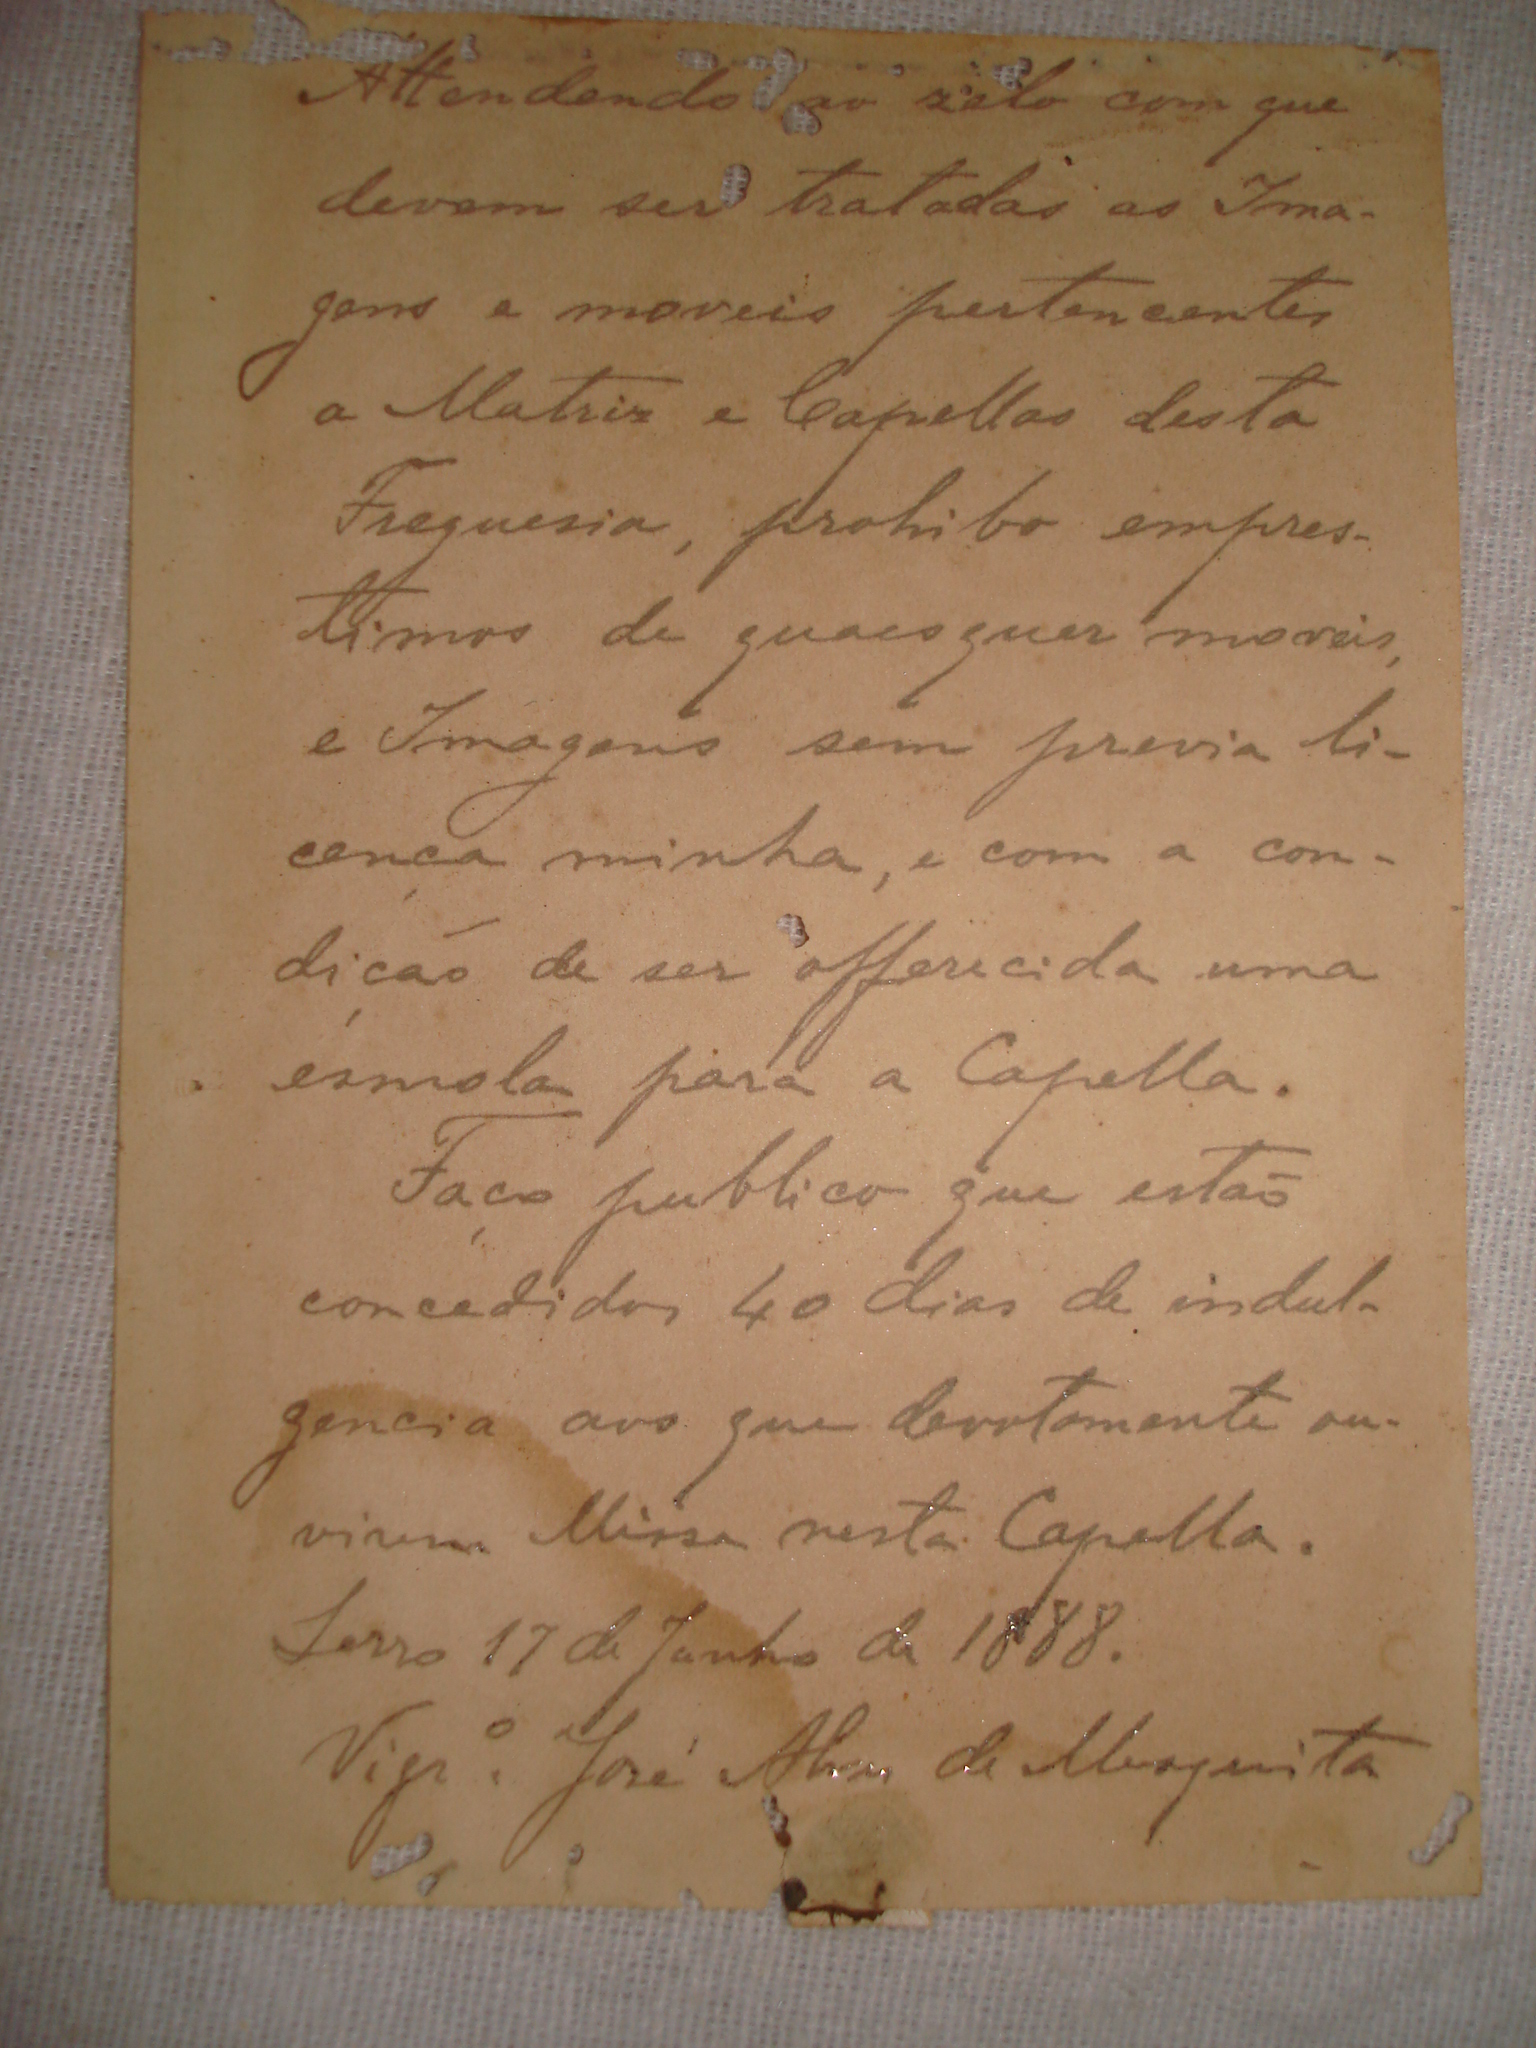 Attendendo ao zelo com que
devem ser tratadas as Ima-
gens e moveis pertencentes
a Matriz e Capellas desta
Freguesia, prohibo empres-
timos de quaesquer moveis,
e Imagens sem previa li-
cença minha, e com a con-
dição de ser offerecida uma
esmola para a Capella.
Faço publico que estão
concedidos 40 dias de indul-
gencia aos que devotamente ou-
virem Missa nesta Capella.
Serro 17 de Junho de 1888.
Vigr.º José Alves de Mesquita